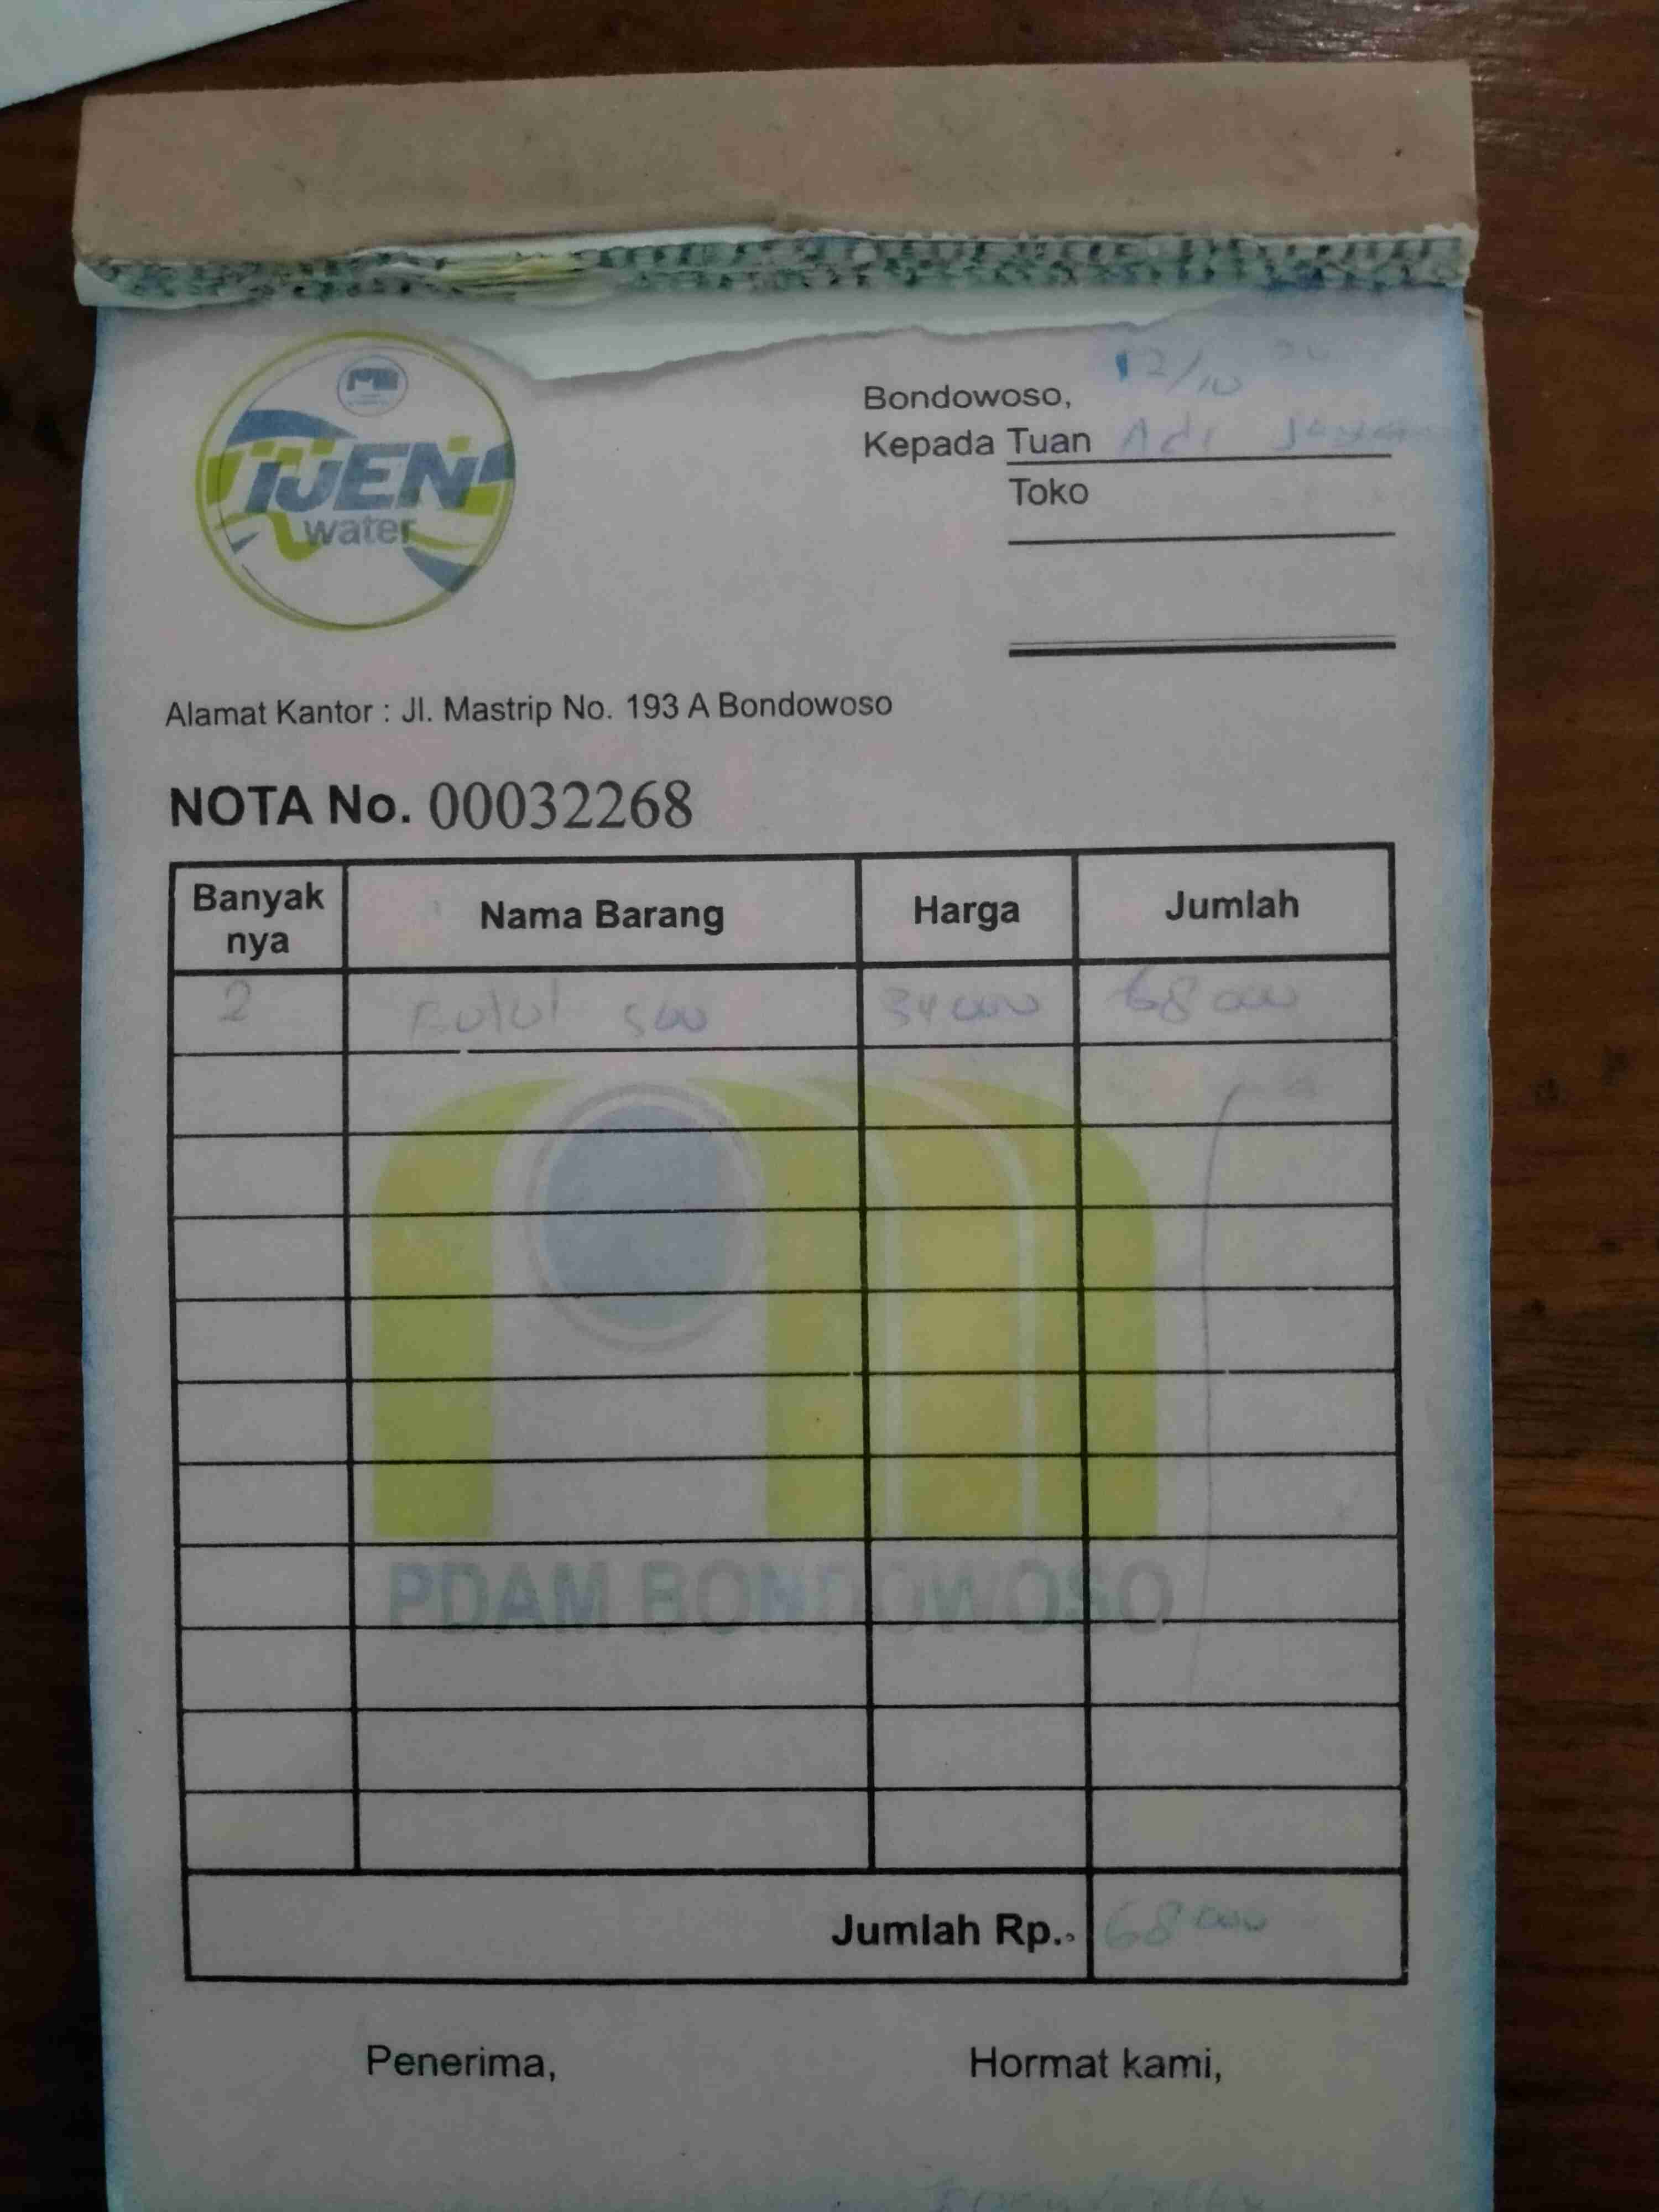 IJEN
water
Bondowoso, 12/10
Kepada Tuan Adi
Toko
Alamat Kantor : Jl. Mastrip No. 193 A Bondowoso
NOTA No. 00032268
Banyak nya Nama Barang Harga Jumlah
2 Botol 500 34000 68000
PDAM BONDOWOSO
Jumlah Rp. 68000
Penerima, Hormat kami,